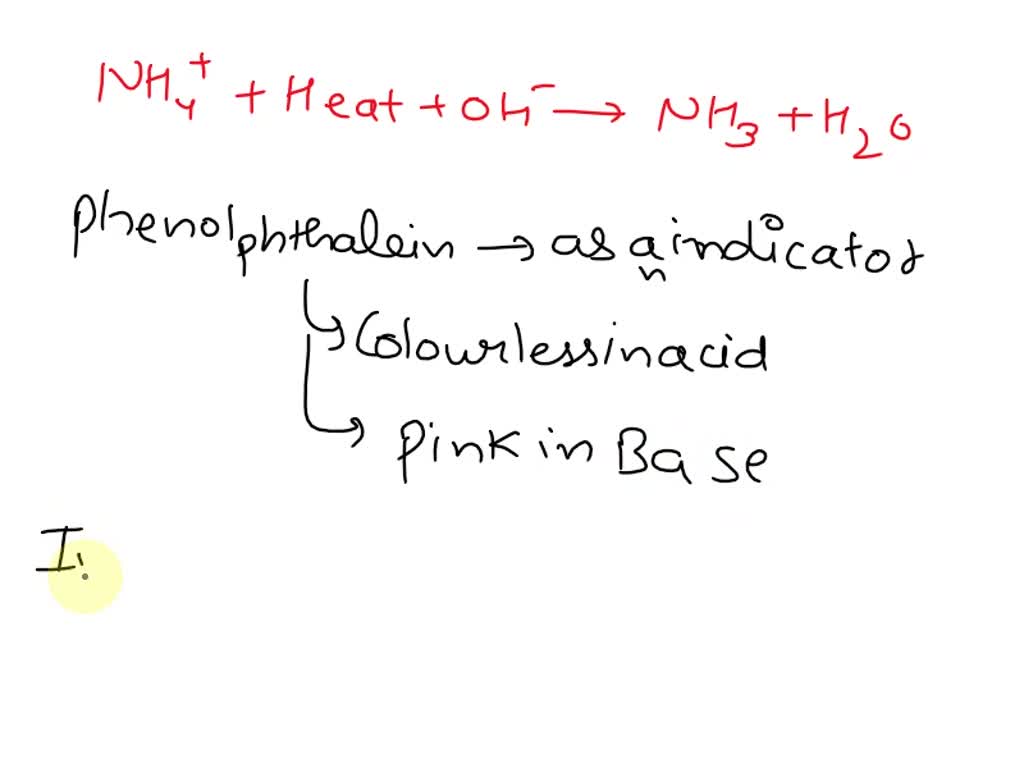 NH₄⁺ + Heat + OH⁻ → NH₃ + H₂O
phenolphthalein → as an indicator
↳ Colourless in acid
↳ Pink in Base
I